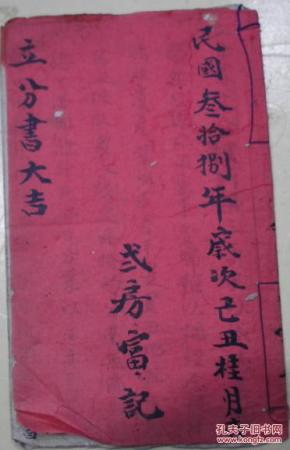 民國叁拾捌年歲次己丑桂月
弍房富記
立分書大吉
孔夫子旧书网